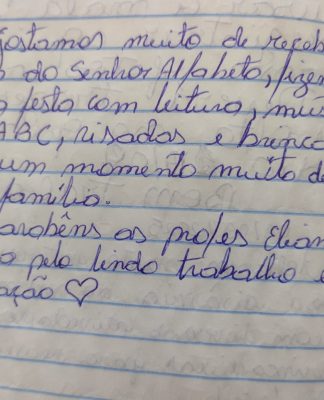 gostamos muito de receb
do Senhor Alfabeto, fizem
festa com leitura, mus
ABC, risadas e brinca
um momento muito de
família.
arabéns as profes Elian
o pela lindo trabalho e
ação ♡